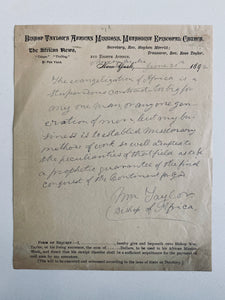 Bishop Taylor's African Missions, Methodist Episcopal Church.
Secretary, Rev. Stephen Merritt;
Treasurer, Rev. Ross Taylor.
The African News,
210 Eighth Avenue,
New York, June 1892
The evangelization of Africa is a
stupendous contract to big for
any one man or any one gen-
eration of men but my bus-
iness is to establish missionary
methods of work so well suited to
the peculiarities of that field as to be
a prophetic guarantee of the final
conquest of the Continent for God
Wm Taylor
Bishop of Africa
Form of Bequest.—I hereby give and bequeath unto Bishop Wm.
Taylor, or his living successor, the sum of Dollars, to be used in his African Mission
Work, and that his receipt therefor shall be sufficient acquittance for the payment of
said sum by my executors.
(The will is to be executed according to the laws relating on same in State or Territory.)